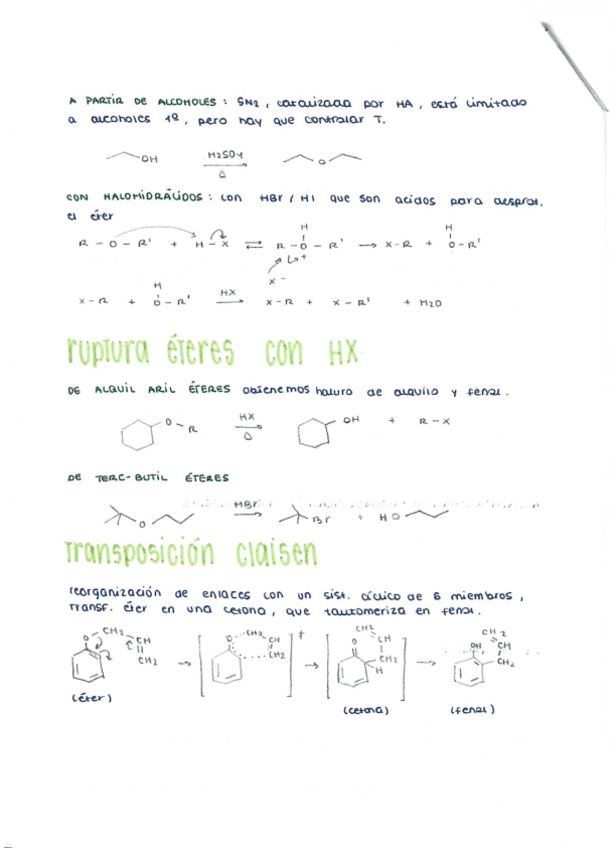 A PARTIR DE ALCOHOLES: SN2, catalizada por HA, está limitado
a alcoholes 1º, pero hay que controlar T.
OH H2SO4 Δ O
CON HALOHIDRÁCIDOS: con HBr / HI que son acidos para desprot.
el éter
R - O - R' + H - X ⇌ R - O - R' → X - R + O - R'
H H
X -
X - R + O - R' HX X - R + X - R' + H2O
H
ruptura éteres con HX
DE ALQUIL ARIL ÉTERES obtenemos haluro de alquilo y fenol.
O - R HX Δ OH + R - X
DE TERC-BUTIL ÉTERES
O HBr Br + HO
Transposición Claisen
reorganización de enlaces con un sist. cíclico de 6 miembros,
transf. éter en una cetona, que tautomeriza en fenol.
O - CH2 CH CH2 → O CH2 CH CH2 ‡ → O CH2 CH CH2 H → OH CH2 CH CH2
(éter) (cetona) (fenol)